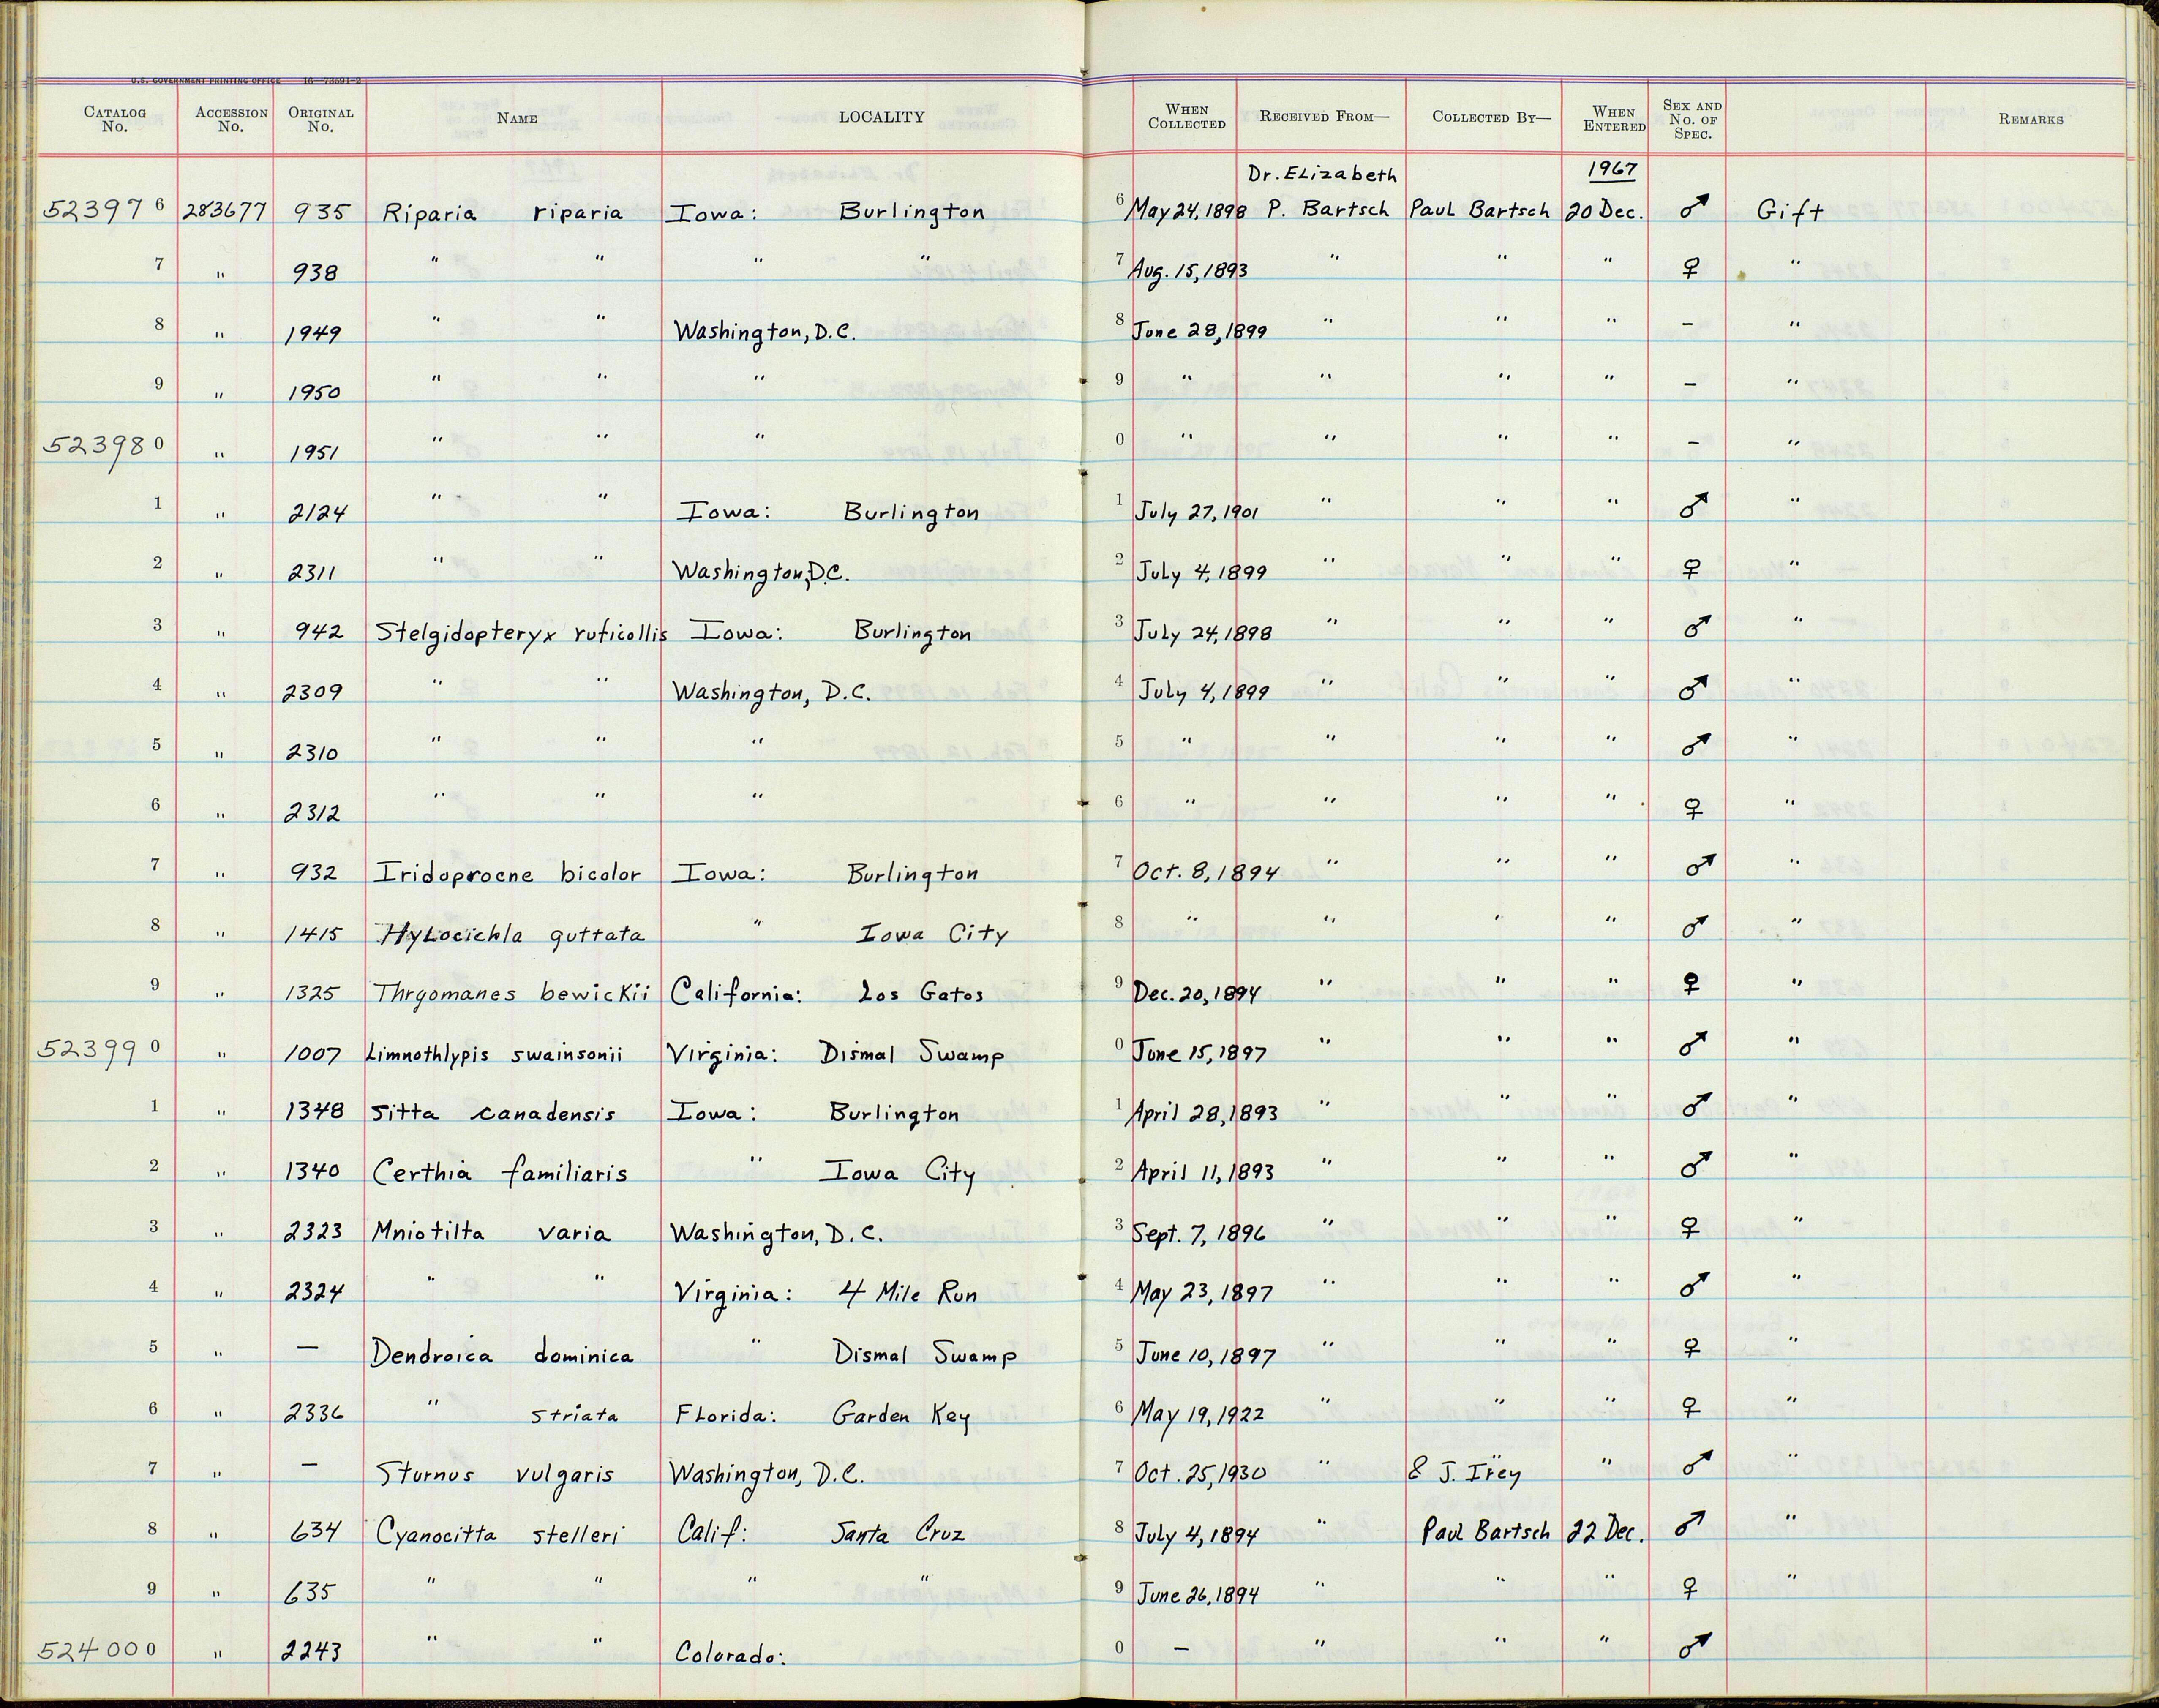 U.S. GOVERNMENT PRINTING OFFICE 16—73591-2
CATALOG No. ACCESSION No. ORIGINAL No. NAME LOCALITY WHEN COLLECTED RECEIVED FROM— COLLECTED BY— WHEN ENTERED SEX AND No. OF SPEC. REMARKS
Dr. Elizabeth 1967
523976 283677 935 Riparia riparia Iowa: Burlington 6 May 24, 1898 P. Bartsch Paul Bartsch 20 Dec. ♂ Gift
7 " 938 " " " " 7 Aug. 15, 1893 " " " ♀ "
8 " 1949 " " Washington, D.C. 8 June 28, 1899 " " " – "
9 " 1950 " " " 9 " " " " – "
523980 " 1951 " " " 0 " " " " – "
1 " 2124 " " Iowa: Burlington 1 July 27, 1901 " " " ♂ "
2 " 2311 " " Washington, D.C. 2 July 4, 1899 " " " ♀ "
3 " 942 Stelgidopteryx ruficollis Iowa: Burlington 3 July 24, 1898 " " " ♂ "
4 " 2309 " " Washington, D.C. 4 July 4, 1899 " " " ♂ "
5 " 2310 " " " 5 " " " " ♂ "
6 " 2312 " " " 6 " " " " ♀ "
7 " 932 Iridoprocne bicolor Iowa: Burlington 7 Oct. 8, 1894 " " " ♂ "
8 " 1415 Hylocichla guttata " Iowa City 8 " " " " ♂ "
9 " 1325 Thrgomanes bewickii California: Los Gatos 9 Dec. 20, 1894 " " " ♀ "
523990 " 1007 Limnothlypis swainsonii Virginia: Dismal Swamp 0 June 15, 1897 " " " ♂ "
1 " 1348 Sitta canadensis Iowa: Burlington 1 April 28, 1893 " " " ♂ "
2 " 1340 Certhia familiaris " Iowa City 2 April 11, 1893 " " " ♂ "
3 " 2323 Mniotilta varia Washington, D.C. 3 Sept. 7, 1896 " " " ♀ "
4 " 2324 " " Virginia: 4 Mile Run 4 May 23, 1897 " " " ♂ "
5 " — Dendroica dominica " Dismal Swamp 5 June 10, 1897 " " " ♀ "
6 " 2336 " striata Florida: Garden Key 6 May 19, 1922 " " " ♀ "
7 " — Sturnus vulgaris Washington, D.C. 7 Oct. 25, 1930 " " & J. Irey " ♂ "
8 " 634 Cyanocitta stelleri Calif: Santa Cruz 8 July 4, 1894 " Paul Bartsch 22 Dec. ♂ "
9 " 635 " " " " 9 June 26, 1894 " " " ♀ "
524000 " 2243 " " Colorado: 0 – " " " ♂